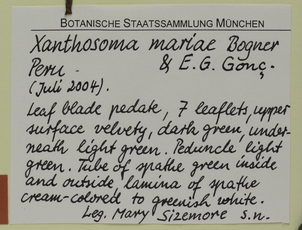 BOTANISCHE STAATSSAMMLUNG MÜNCHEN
Xanthosoma mariae Bogner
Peru. & E.G. Gonç.
(Juli 2004).
Leaf blade pedate, 7 leaflets, upper
surface velvety, dark green, under-
neath light green. Peduncle light
green. Tube of spathe green inside
and outside, lamina of spathe
cream-colored to greenish white.
Leg. Mary Sizemore s.n.